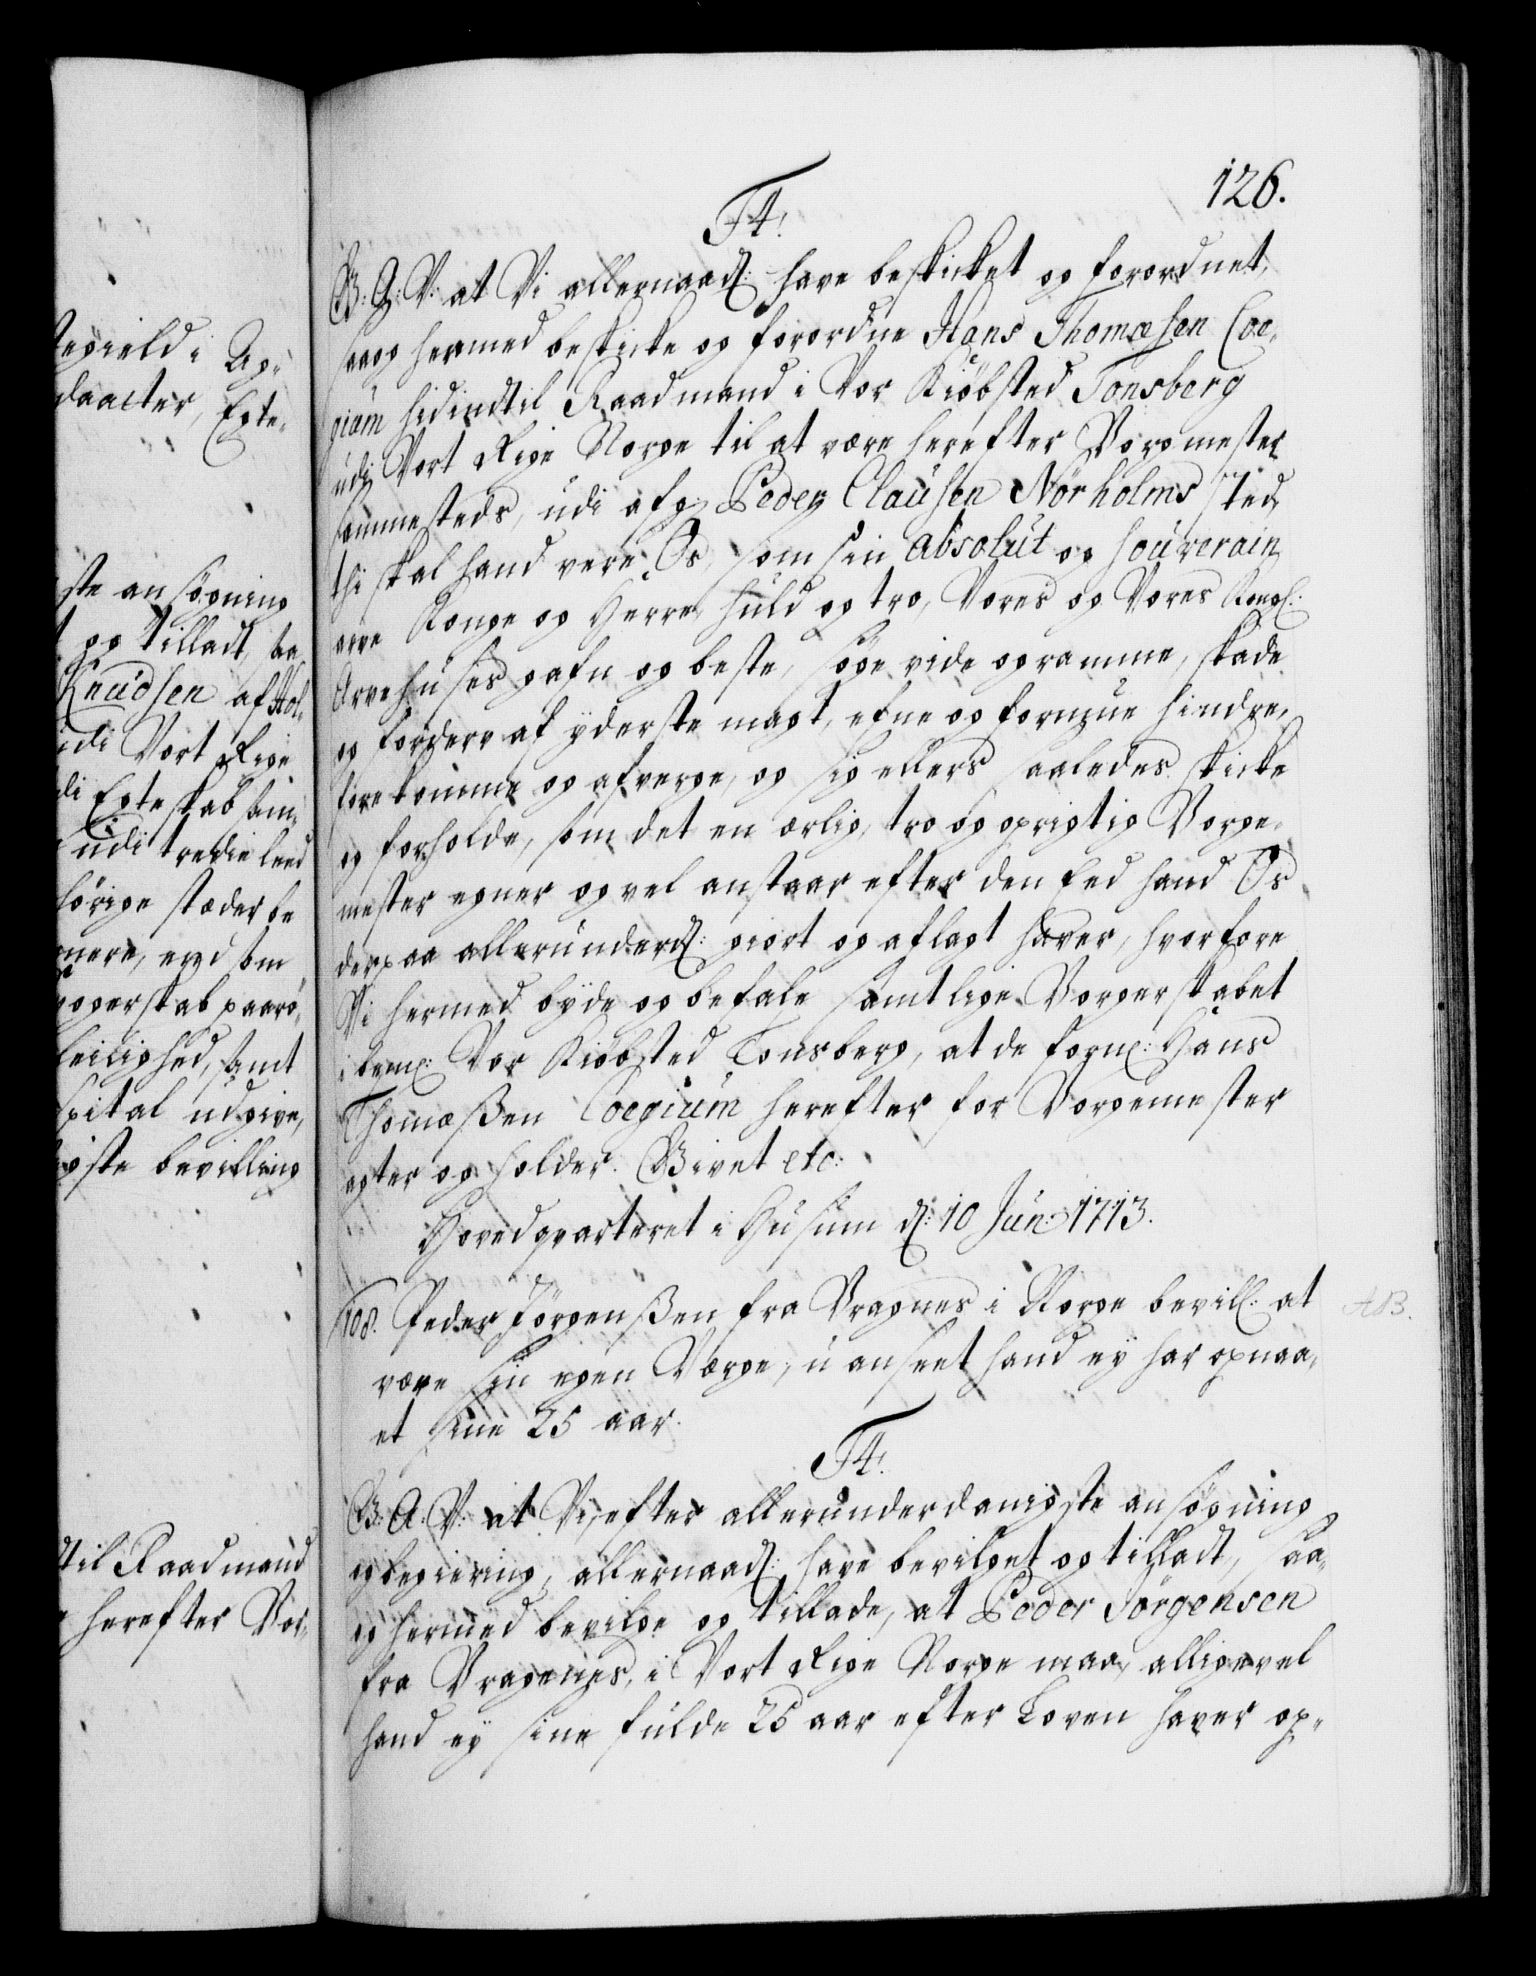 126.
F4.
G: A: V: at Vi allernaad: have beskicket og forordnet,
saa og hermed beskicke og forordne Hans Thomæsen Coe-
gium hidindtil Raadmand i Vor Kiöbsted Tonsberg
udj Vort Rige Norge til at være herefter Borgmester
sammesteds, udi afg: Peder Clausen Nörholms Sted,
thi skal hand være Os, som sin absolut og souverain
arve Konge og Herre, huld og tro, Vores og Vores Kongl:
Arvehuses gafn og beste, søge vide og ramme, skade
og forderv af yderste magt, efne og formue hindre,
forekomme og afverge, og sig ellers saaledes skicke
og forholde, som det en ærlig, tro og oprigtig Borge-
mester egner og vel anstaar efter den Eed hand Os
derpaa allerunderd: giort og aflagt haver, hvorfore
Vi hermed byde og befale samtlige Borgerskabet
i bem: Vor Kiöbsted Tonsberg, at de form: Hans
Thomæßen Coegium herefter for Borgemester
agter og holder. Givet etc:
Hovedqvarteret i Husum d: 10 Jun: 1713.
108. Peder Jörgenßen fra Bragnes i Norge bevil: at
være sin egen Værge, uanseet hand ey har opnaa-
et sine 25 aar.
F4.
G: A: V: at Vi, efter allerunderdanigste ansögning
og begiering, allernaad: have bevilget og tilladt, saa-
og hermed bevilge og tillade, at Peder Jörgensen
fra Bragenes, i Vort Rige Norge maa, alligevel
hand ey sine fulde 25 aar efter Loven haver op-
AB.
egield i Ag-
daatter, Egte-
ste ansögning
og tilladt, saa
Knudsen af Hol-
udi Vort Rige
di Egteskab sam-
udi tredie leed
hörige stæder be
nere, end som
ogerskab paarö-
leilighed, samt
spital udgive,
igste bevilling
til Raadmand
herefter Bor-